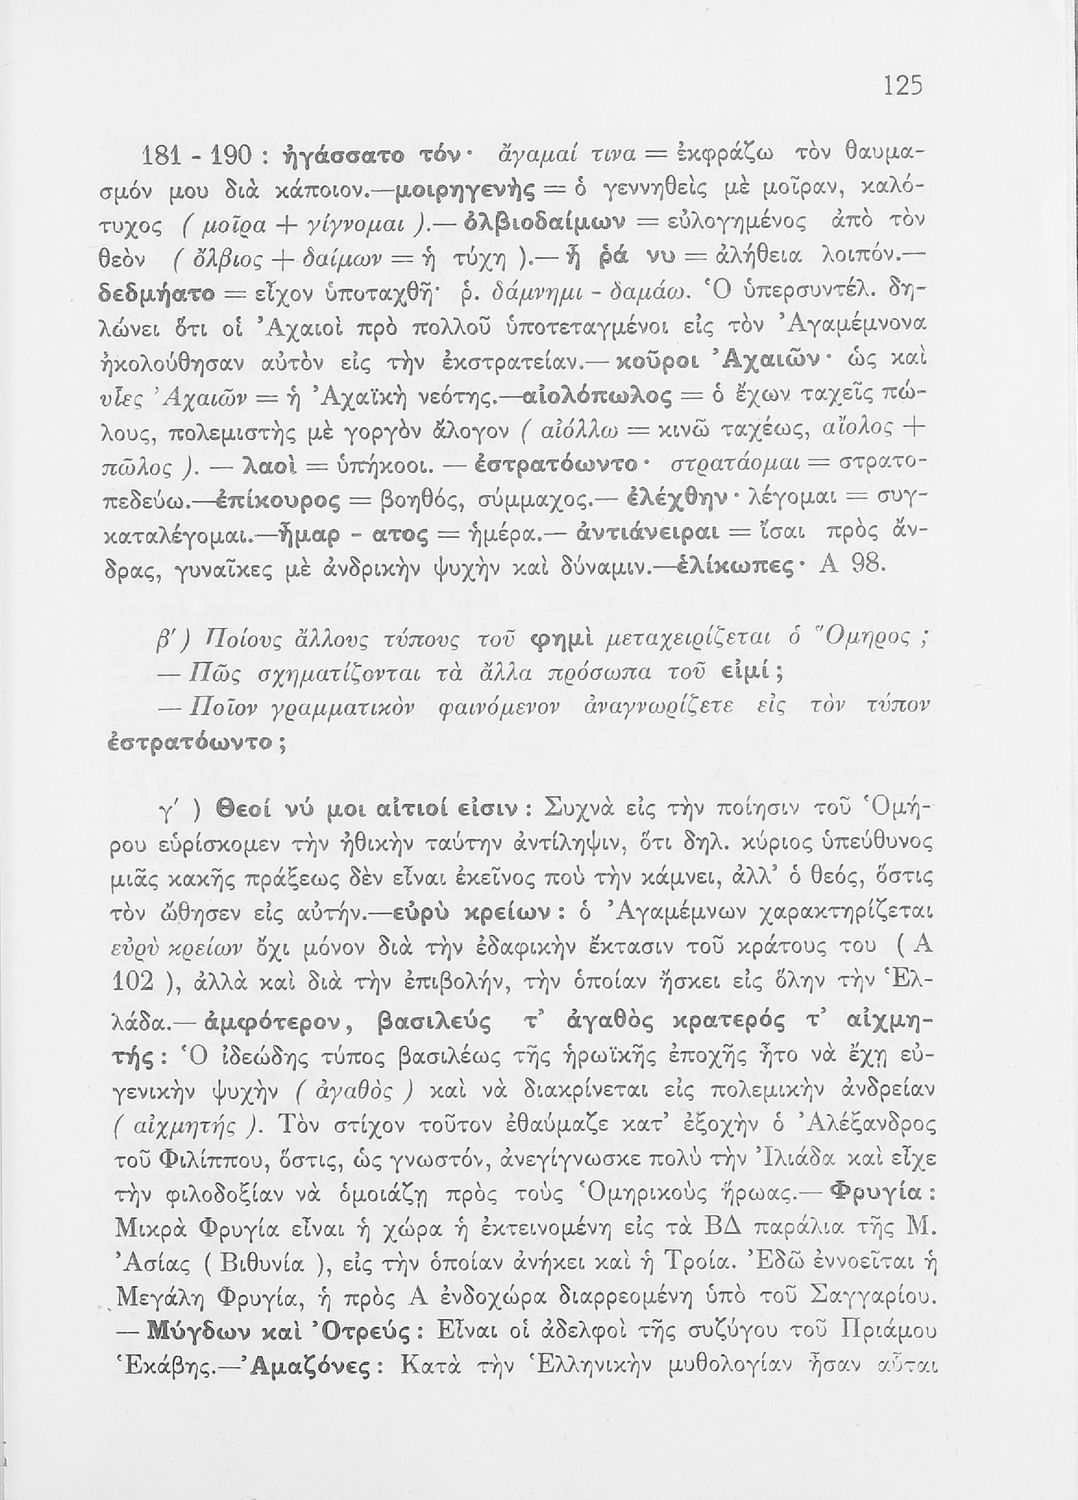 125
181 - 190 : ἠγάσσατο τόν· ἄγαμαί τινα = ἐκφράζω τὸν θαυμα-
σμόν μου διὰ κάποιον.—μοιρηγενὴς = ὁ γεννηθεὶς μὲ μοῖραν, καλό-
τυχος ( μοῖρα + γίγνομαι ).— ὀλβιοδαίμων = εὐλογημένος ἀπὸ τὸν
θεὸν ( ὄλβιος + δαίμων = ἡ τύχη ).— ἦ ῥά νυ = ἀλήθεια λοιπόν.—
δεδμήατο = εἶχον ὑποταχθῆ· ῥ. δάμνημι - δαμάω. Ὁ ὑπερσυντέλ. δη-
λώνει ὅτι οἱ Ἀχαιοὶ πρὸ πολλοῦ ὑποτεταγμένοι εἰς τὸν Ἀγαμέμνονα
ἠκολούθησαν αὐτὸν εἰς τὴν ἐκστρατείαν.— κοῦροι Ἀχαιῶν· ὡς καὶ
υἷες Ἀχαιῶν = ἡ Ἀχαϊκὴ νεότης.—αἰολόπωλος = ὁ ἔχων ταχεῖς πώ-
λους, πολεμιστὴς μὲ γοργὸν ἄλογον ( αἰόλλω = κινῶ ταχέως, αἴολος +
πῶλος ). — λαοὶ = ὑπήκοοι. — ἐστρατόωντο· στρατάομαι = στρατο-
πεδεύω.—ἐπίκουρος = βοηθός, σύμμαχος.— ἐλέχθην· λέγομαι = συγ-
καταλέγομαι.—ἦμαρ - ατος = ἡμέρα.— ἀντιάνειραι = ἴσαι πρὸς ἄν-
δρας, γυναῖκες μὲ ἀνδρικὴν ψυχὴν καὶ δύναμιν.—ἑλίκωπες· Α 98.
β′ ) Ποίους ἄλλους τύπους τοῦ φημὶ μεταχειρίζεται ὁ Ὅμηρος ;
— Πῶς σχηματίζονται τὰ ἄλλα πρόσωπα τοῦ εἰμί ;
— Ποῖον γραμματικὸν φαινόμενον ἀναγνωρίζετε εἰς τὸν τύπον
ἐστρατόωντο ;
γ′ ) Θεοί νύ μοι αἴτιοί εἰσιν : Συχνὰ εἰς τὴν ποίησιν τοῦ Ὁμή-
ρου εὑρίσκομεν τὴν ἠθικὴν ταύτην ἀντίληψιν, ὅτι δηλ. κύριος ὑπεύθυνος
μιᾶς κακῆς πράξεως δὲν εἶναι ἐκεῖνος ποὺ τὴν κάμνει, ἀλλ' ὁ θεός, ὅστις
τὸν ὤθησεν εἰς αὐτήν.—εὐρὺ κρείων : ὁ Ἀγαμέμνων χαρακτηρίζεται
εὐρὺ κρείων ὄχι μόνον διὰ τὴν ἐδαφικὴν ἔκτασιν τοῦ κράτους του ( Α
102 ), ἀλλὰ καὶ διὰ τὴν ἐπιβολήν, τὴν ὁποίαν ἤσκει εἰς ὅλην τὴν Ἑλ-
λάδα.— ἀμφότερον, βασιλεύς τ' ἀγαθὸς κρατερός τ' αἰχμη-
τής : Ὁ ἰδεώδης τύπος βασιλέως τῆς ἡρωϊκῆς ἐποχῆς ἦτο νὰ ἔχῃ εὐ-
γενικὴν ψυχὴν ( ἀγαθὸς ) καὶ νὰ διακρίνεται εἰς πολεμικὴν ἀνδρείαν
( αἰχμητής ). Τὸν στίχον τοῦτον ἐθαύμαζε κατ' ἐξοχὴν ὁ Ἀλέξανδρος
τοῦ Φιλίππου, ὅστις, ὡς γνωστόν, ἀνεγίγνωσκε πολὺ τὴν Ἰλιάδα καὶ εἶχε
τὴν φιλοδοξίαν νὰ ὁμοιάζῃ πρὸς τοὺς Ὁμηρικοὺς ἥρωας.— Φρυγία :
Μικρὰ Φρυγία εἶναι ἡ χώρα ἡ ἐκτεινομένη εἰς τὰ ΒΔ παράλια τῆς Μ.
Ἀσίας ( Βιθυνία ), εἰς τὴν ὁποίαν ἀνήκει καὶ ἡ Τροία. Ἐδῶ ἐννοεῖται ἡ
Μεγάλη Φρυγία, ἡ πρὸς Α ἐνδοχώρα διαρρεομένη ὑπὸ τοῦ Σαγγαρίου.
— Μύγδων καὶ Ὀτρεύς : Εἶναι οἱ ἀδελφοὶ τῆς συζύγου τοῦ Πριάμου
Ἑκάβης.—Ἀμαζόνες : Κατὰ τὴν Ἑλληνικὴν μυθολογίαν ἦσαν αὗται